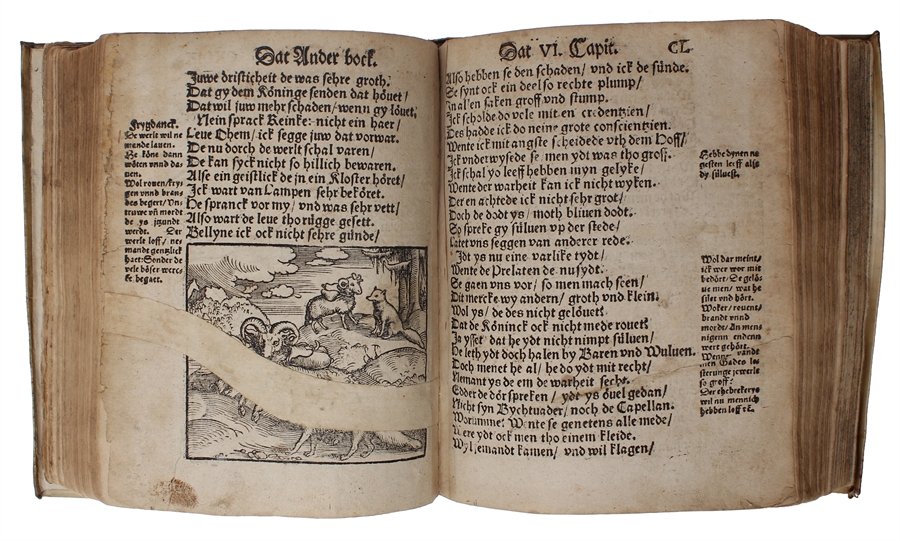 Dat Ander boek.
Juwe dristicheit de was sehre groth.
Dat gy dem Köninge senden dat höuet/
Dat wil juw mehr schaden/ wenn gy löuet.
Nein sprack Reinke: nicht ein haer/
Leue Ohem/ ick segge juw dat vorwar.
De nu dorch de werlt schal varen/
De kan syck nicht so hillich bewaren.
Alse ein geistlick de jn ein Kloster höret/
Ick wart van Lampen sehr beköret.
He spranck vor my/ vnd was sehr vett/
Also wart de leue thorügge gesett.
Bellyne ick ock nicht sehre günde/
Frygdanck.
De werlt wil ne
mande lauen.
Se köne dann
vnnd da-
uen.
Wol rouen/ kry-
gen vnnd bran-
des begert/ Vn-
truwe vñ mordt
de ys itzundt
werdt. Der
werlt loff/ ne-
mandt gentzlick
hatt: Sonder de
vele böser werc-
ke begatt.
Dat VI. Capit. CL.
Also hebben se den schaden/ vnd ick de sünde.
Se synt ock ein deel so rechte plump/
In al'en saken groff vnd stump.
Ick scholde do vele mit en credentzien/
Des hadde ick do neine grote conscientzien.
Wente ick mit angste scheidede vth dem Hoff/
Ick vnderwysede se men ydt was tho groff.
Ick schal yo leeff hebben myn gelyke/
Wente der warheit kan ick nicht wyken.
Der en achtede ick nicht sehr grot/
Doch de dodt ys/ moth bliuen dodt.
So spreke gy süluen vp der stede/
Latet vns seggen van anderer rede.
Idt ys nu eine varlike tydt/
Wente de Prelaten de nu sydt.
Se gaen vns vor/ so men mach seen/
Dit mercke wy andern/ groth vnd klein.
Wol ys/ de des nicht gelöuet
Dat de Köninck ock nicht mede rouet
Ja ysset dat he ydt nicht nimpt süluen/
De leth ydt doch halen by Baren vnd Wuluen.
Doch menet he al/ he do ydt mit recht/
Niemant ys de em de warheit secht.
Edder de dör spreken/ ydt ys öuel gedan/
Nicht syn Bychtuader/ noch de Capellan.
Worumme: Wente se genetens alle mede/
Were ydt ock men tho einem kleide.
Wyl jemandt kamen/ vnd wil klagen/
Hebbe dynen ne
gesten leeff alse
dy süluest.
Wol dar meint/
ick wer wor mit
bedört/ Se gelö-
ue men/ wat he
silet vnd hört.
Woker/ rouent/
brandt vnnd
mordt/ An mens
nigenn endenn
wert gehört.
Wenne vandt
men Gades le-
sterunge jewerle
so groff?
Der ehebrekery
wil nu mennich
hebben loff ꝛc.